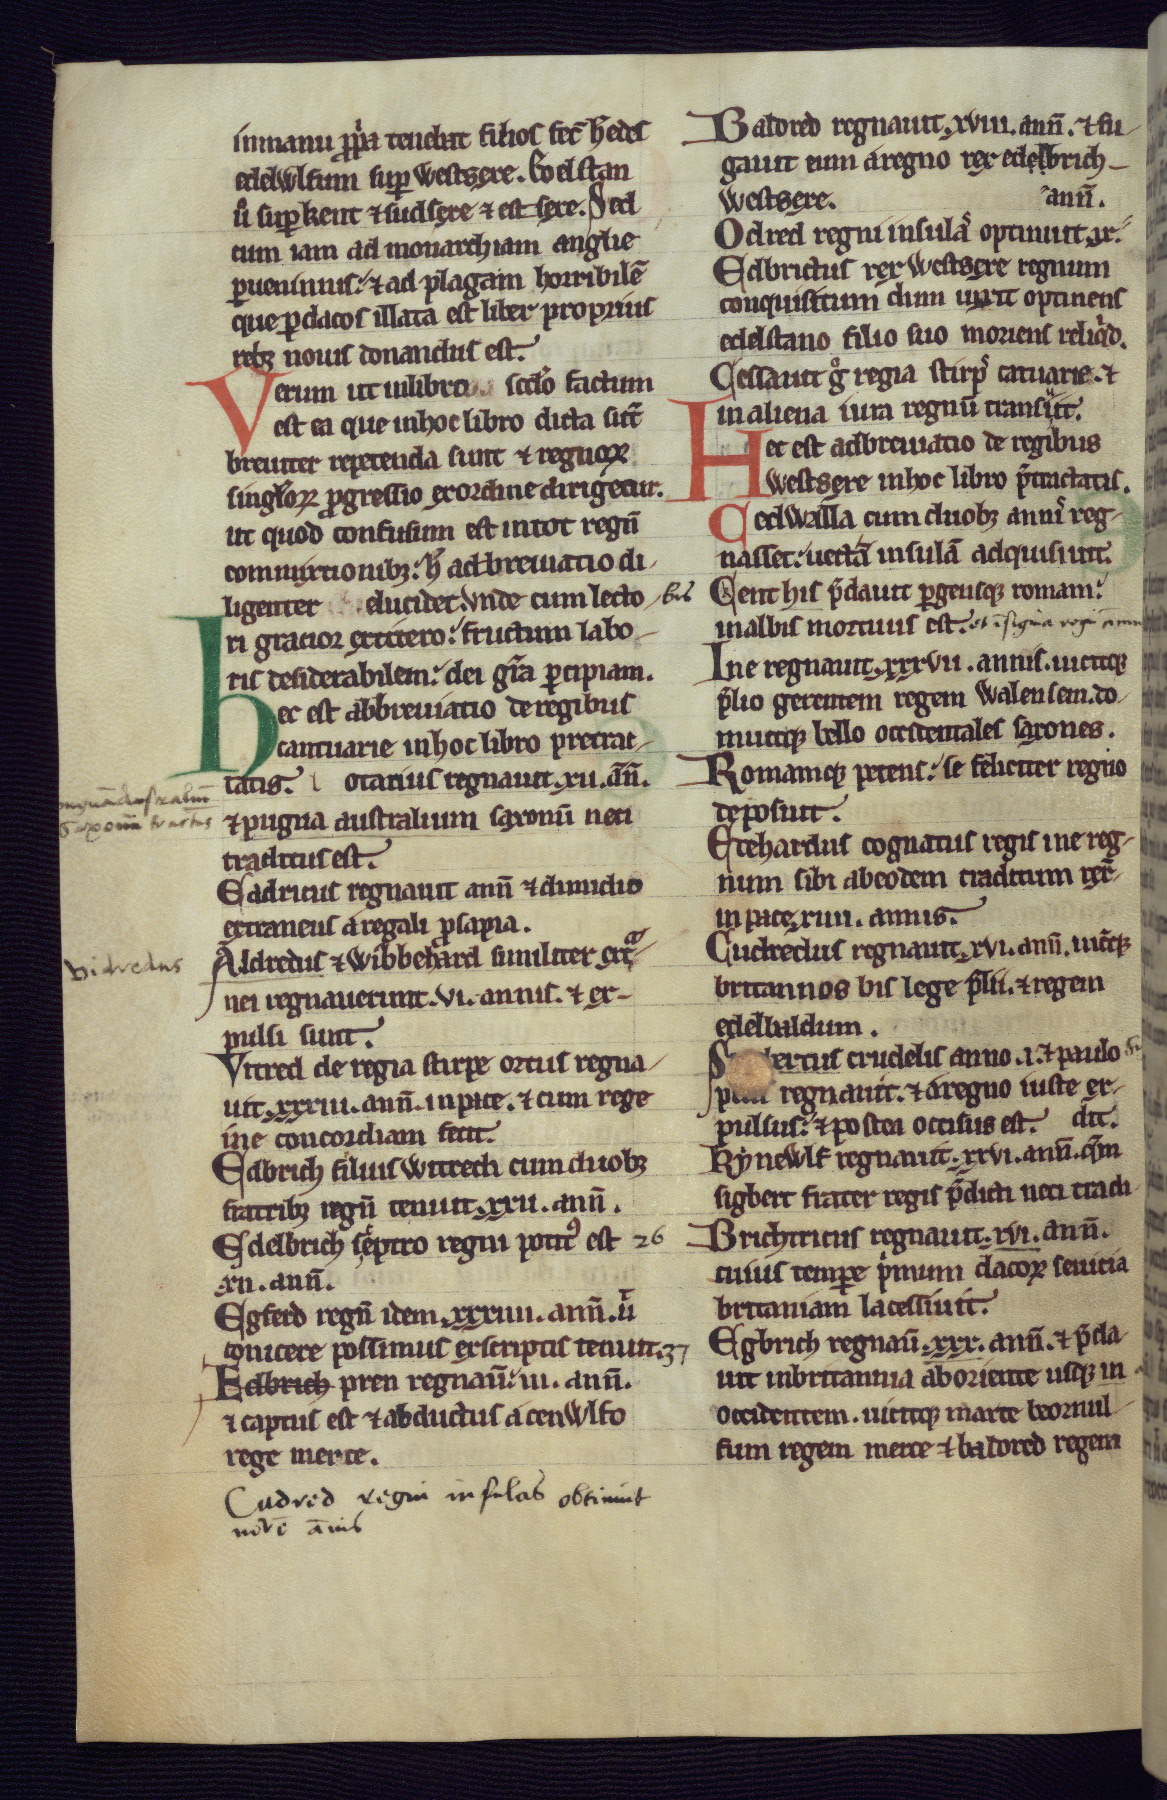 inmanu ꝓp̄a tendent filios fec̄ h̄edes
edelwlfum sup̱ westsexe. Edelstan
ū sup̱ kent ⁊ sudsexe ⁊ estsexe. Sed
cum iam ad monarchiam anglie
ꝑuenimus: ⁊ ad plagam horribilē
que ꝑ dacos illata est liber proprius
rebꝫ nouis donandus est.
Verum ut inlibro scdo factum
est ea que inhoc libro dicta sūt
breuiter repetenda sunt ⁊ regnoꝝ
singloꝝ ꝓgressio exordine dirigetur.
ut quod confusum est intot regn̄
commixtionibꝫ: h̄ adbreuiatio di-
ligenter elucidet. Vnde cum lecto bus
ri gracior extitero: fructum labo-
ris desiderabilem: dei gr̄a ꝑcipiam.
Hec est abbreuiatio de regibus
cantuarie inhoc libro pretrac-
tatis. Lotarius regnauit .xii. an̄n.
⁊ pugna australium saxonū neci
traditus est.
Eadricus regnauit ann̄ ⁊ dimidio
extraneus aregali ꝓsapia.
Aldredus ⁊ Wibbehard similiter ext̄a
nei regnauerunt .vi. annis. ⁊ ex-
pulsi sunt.
Vidredus
Victred de regia stirpe ortus regna-
uit .xxxiii. ann̄. inpace. ⁊ cum rege
ine concordiam fecit.
Edbrich filius Witrech cum duobꝫ
fratribꝫ regn̄ tenuit .xxii. ann̄.
Edelbrich sceptro regni potitꝰ est 26
xii. ann̄.
Egferd regn̄ idem .xxxiiii. ann̄. ū
conicere possimus exscriptis tenuit. 37
Edbrich pren regnau̅ .iii. ann̄.
⁊ captus est ⁊ abductus a cenwlfo
rege merce.
Cudred regni insulas obtinuit
nove ānis
Baldred regnauit .xviii. ann̄. ⁊ fu-
gauit eum aregno rex edelbrich
westsexe. ann̄.
Odred regni insulā optinuit .ix.
Edbrictus rex westsexe regnum
conquisitum dum uixit optinens
edelstano filio suo moriens reliqd.
Cessauit gͦ regia stirps catuarie. ⁊
in aliena iura regnū transiit.
Hec est adbreuiatio de regibus
westsexe inhoc libro p̄tractatis.
Cedwalla cum duobꝫ annis reg-
nasset: uectā insulā adquisiuit.
Cent his p̄dauit pergensqꝫ romam:
inalbis mortuus est.
Ine regnauit .xxxvii. annis. uicitqꝫ
p̄lio gerentem regem Walensem. do-
muitqꝫ bello occidentales saxones.
Romamqꝫ petens: se feliciter regno
deposuit.
Etehardus cognatus regis ine reg-
num sibi abeodem traditum rex̄-
inpace .xiiii. annis.
Cudredus regnauit .xvi. ann̄. uicitqꝫ
britannos bis lege p̄lii. ⁊ regem
edelbaldum.
ertus crudelis anno .i. ⁊ paulo
regnauit. ⁊ aregno iuste ex-
pulsus: ⁊ postea occisus est. dit.
Kynewlf regnauit .xxvi. ann̄. q̄m
sigbert frater regis p̄dicti neci tradi-
Brichtricus regnauit .xvi. ann̄.
cuius tempore p̄mum dacoꝝ seuicia
britaniam lacessiuit.
Egbrich regnau̅ .xxx. ann̄. ⁊ p̄da-
uit inbritannia aboriente usqꝫ in
occidentem. uicitqꝫ marte beornul-
fum regem merce ⁊ baldred regem